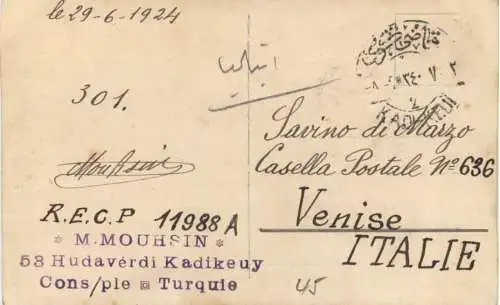 le 29-6-1924
ايتاليا
301.
Mouhsin
R.E.C.P 11988 A
* M. MOUHSIN *
53 Hudavérdi Kadikeuy
Cons/ple Turquie
قاضیکوی
٣٤٠ ٧ ٢
2
KADIKEUI
Savino di Marzo
Casella Postale Nº 636
Venise
ITALIE
45